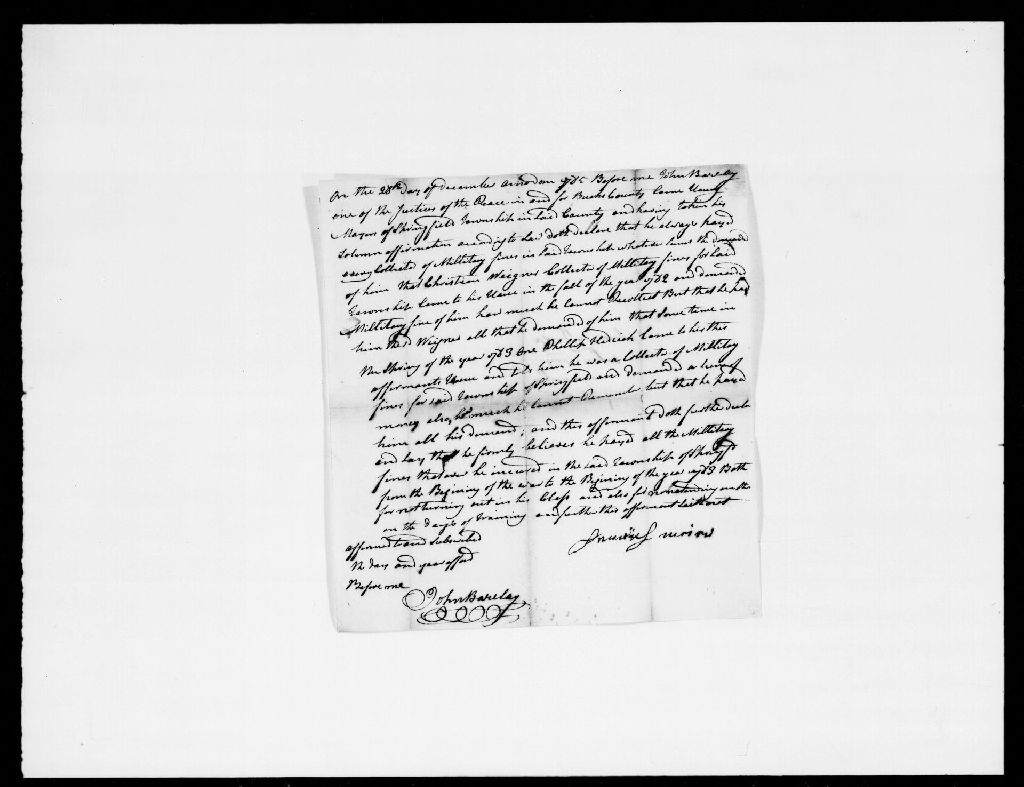 On the 28th day of december annodom 1785 Before me John Barclay
one of the Justices of the Peace in and for Bucks County Came
Moyers of Springfield Township in said County and having taken his
Solemn affirmation according to Law doth declare that he always payed
every Collector of Millitay fines in said Township what ever sums the demanded
of him that Christian Weigner Collector of Millitay fines for said
Township Came to his House in the fall of the year 1782 and demanded
Millitay fine of him how much he Cannot Recollect But that he payed
him the sd Weigner all that he demanded of him that Some time in
the Spring of the year 1783 One Phillip Hedrick Came to his this
affirmants House and told him he was a Collector of Millitay
fines for said Township of Springfield and demanded a sum of
money also, how much he Cannot Remember but that he payed
him all his demand, and this affirmant doth further declare
and Say that he firmly believes he payed all the Millitay
fines that ever he incured in the said Township of Springfd
from the Begining of the war to the Begining of the year 1783 Both
for not turning out in his Class and also for not attending on the
on the days of training and further this affirmant saith not
affirmed to and Subscribed
the day and year afforsd
Before me
John Barclay